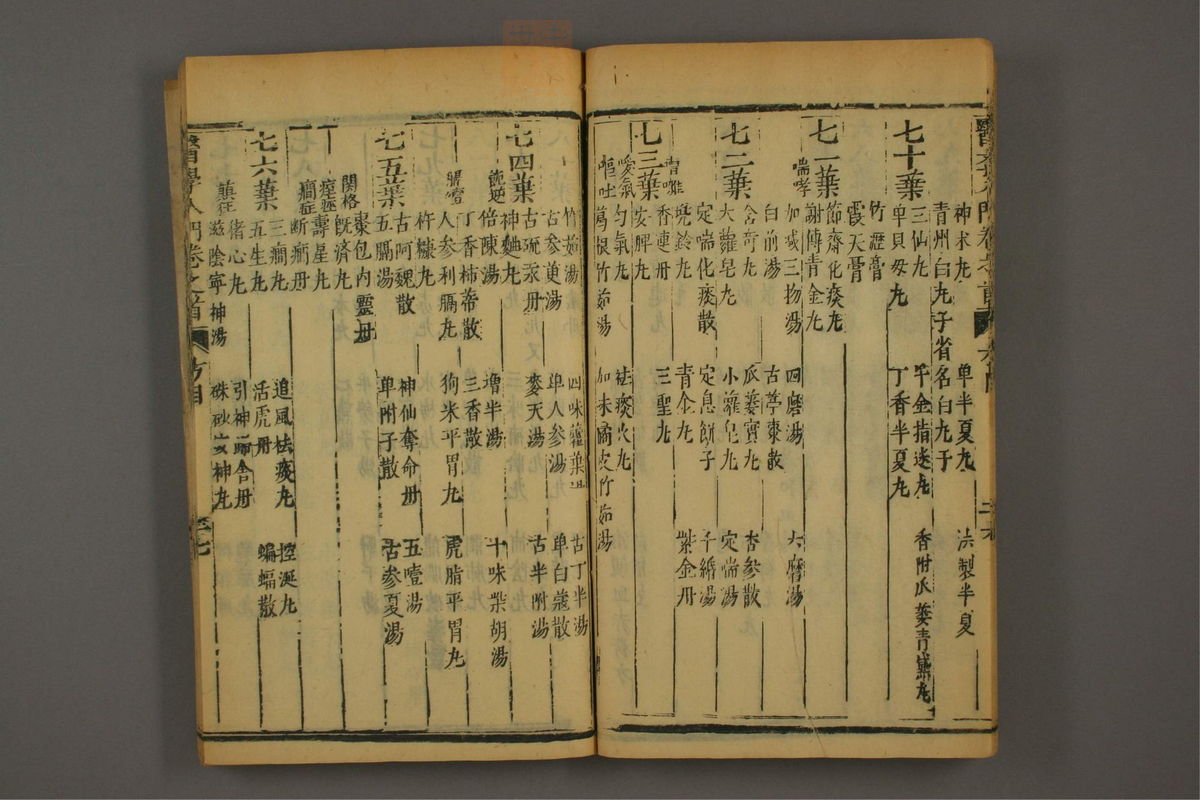 神术丸 单半夏丸 法製半夏
青州白丸子 省名白丸子
七十葉
三仙丸 千金指迷丸 香附瓜蔞青黛丸
单貝母丸 丁香半夏丸
竹瀝膏
霞天膏
七一葉
節齋化痰丸
喘哮
謝傳青金丸
加減三拗湯 四磨湯 六磨湯
白前湯 古葶棗散
七二葉
含奇丸 瓜蔞實丸 杏參散
大蘿皂丸 小蘿皂丸 定喘湯
定喘化痰散 定息餅子 千緡湯
兜鈴丸 青金丸 紫金丹
七三葉
香連丹 三聖丸
安脾丸
噯氣
勻氣丸 祛痰火丸
嘔吐
葛根竹茹湯 加味橘皮竹茹湯
竹茹湯 四味藿葉 古丁半湯
古參萸湯 单人參湯 单白蔻散
七四葉
古硫汞丹 麥天湯 古半附湯
神麯丸
倍陳湯 增半湯 十味柴胡湯
丁香柿蒂散 三香散
膈噎
人參利膈丸 狗米平胃丸 虎脂平胃丸
杵糠丸
七五葉
古阿魏散 神仙奪命丹 五噎湯
五膈湯 单附子散 古參夏湯
棗包內靈丹
関格
既濟丸
壽星丸
癇症
斷癇丹
七六葉
三癇丸 追風祛痰丸 控涎丸
五生丸 活虎丹 蝙蝠散
猪心丸 引神歸舍丹
癲狂
滋陰寧神湯 硃砂安神丸
醫學入門卷之首 方目 三七